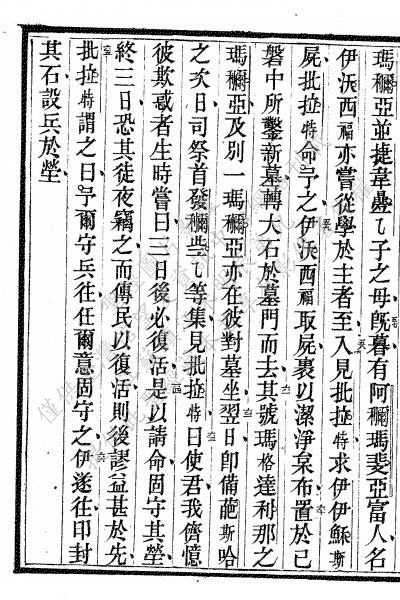 瑪穪亞並捷韋疊乀子之母旣暮有阿穪瑪斐亞富人名
伊沃西福亦嘗從學於主者至入見批拉特求伊伊穌斯
屍批拉特命予之伊沃西福取屍裹以潔淨枲布置於己
磐中所鑿新墓轉大石於墓門而去其號瑪格達利那之
瑪穪亞及別一瑪穪亞亦在彼對墓坐翌日卽備葩斯哈
之次日司祭首發穪些乀等集見批拉特曰使君我儕憶
彼欺惑者生時嘗曰三日後必復活是以請命固守其塋
終三日恐其徒夜竊之而傳民以復活則後謬益甚於先
批拉特謂之曰予爾守兵往任爾意固守之伊遂往印封
其石設兵於塋